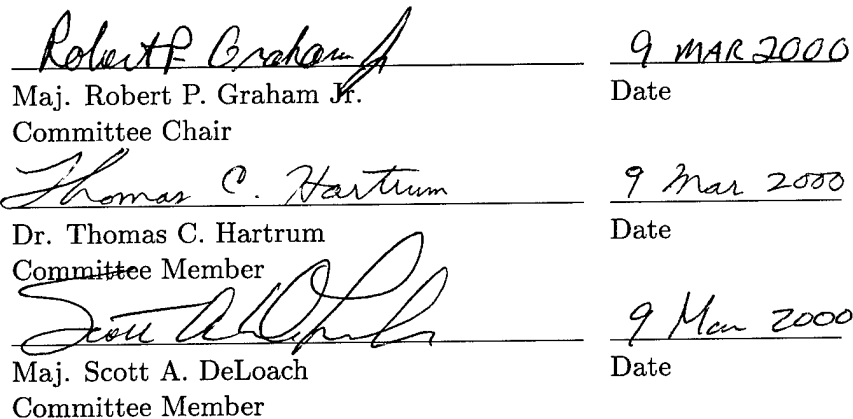 Robert P Graham Jr 9 MAR 2000
Maj. Robert P. Graham Jr. Date
Committee Chair
Thomas C. Hartrum 9 Mar 2000
Dr. Thomas C. Hartrum Date
Committee Member
Scott A DeLoach 9 Mar 2000
Maj. Scott A. DeLoach Date
Committee Member